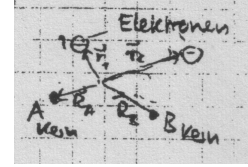 Elektronen
1 ⊖ r⃗₁ r⃗₂ ⊖
A R_A R_B B Kern
Kern